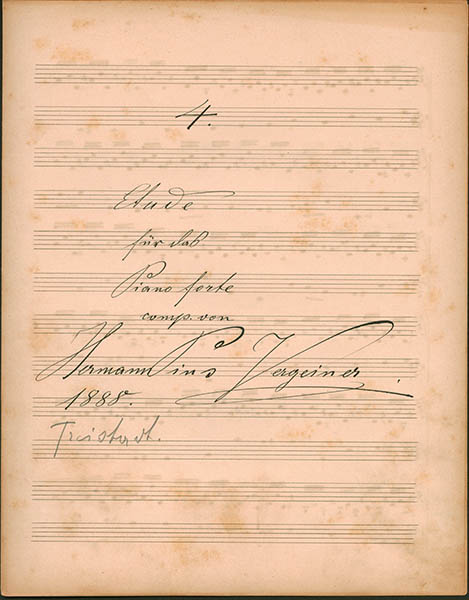 4.
Etude
für das
Piano forte
comp. von
Hermann Pius Vergeiner.
1888.
Freistadt.